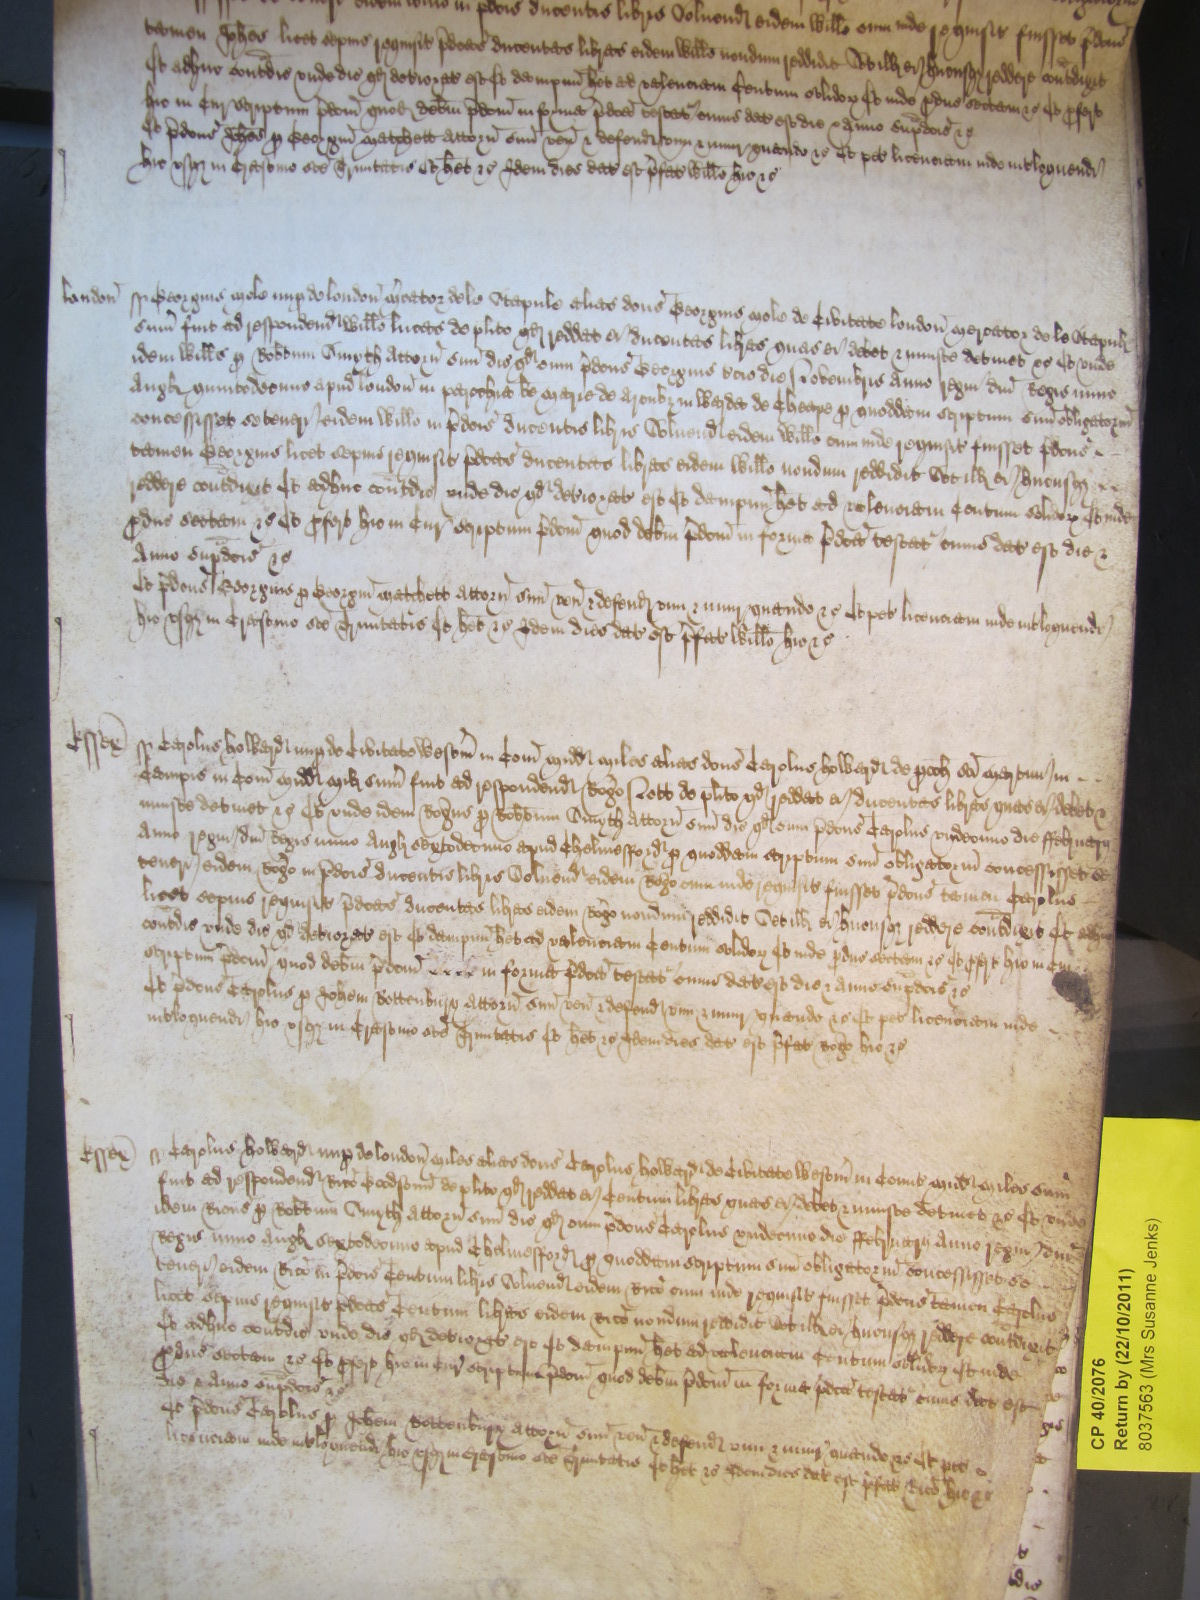 eidem Willo in p̄dcis ducentis libris Solvend eidem Willo cum inde requisit fuisset p̄dcus
tamen Thos licet sepius requisit p̄dcas ducentas libras eidem Willo nondum reddidit Set ill ei hucusq reddere contdixit
Et adhuc contdic unde dic qd deteriorat est Et dampnu het ad valenciam Centum solidox Et inde pduc sectam &c Et pfert
hic in Cur scriptum p̄dcm quod debm p̄dcm in forma p̄dca testat cuius dat est die & Anno supdcis &c
Et p̄dcus Thos p Georgiu Matchett Attorn suu ven & defend vim & iniur quando &c Et pet licenciam inde intloquendi
hic usq in Crastino sce Trinitatis Et het &c Idem dies dat est p̄fat Willo hic &c
London ss Georgius Mole nup de London Mcator de le Stapule alias dcus Georgius Mole de Civitate London Mercator de le Stapule
sum fuit ad respondend Willo Lucas de plito qd reddat ei ducentas libras quas ei debet & iniuste detinet &c Et unde
idem Willus p Robtum Smyth Attorn suu dic qd cum p̄dcus Georgius tcio die Novembris Anno regni dni Regis nunc
Angl quintodecimo apud London in parochia be Marie de Arcubz in Warda de Cheape p quoddam scriptum suu obligatoriu
concessisset se teneri eidem Willo in p̄dcis ducentis libris Solvend eidem Willo cum inde requisit fuisset p̄dcus
tamen Georgius licet sepius requisit p̄dcas ducentas libras eidem Willo nondum reddidit Set ill ei hucusq
reddere contdixit Et adhuc contdic unde dic qd deteriorat est Et dampnu het ad valenciam Centum solidox Et inde
pduc sectam &c Et pfert hic in Cur scriptum p̄dcm quod debm p̄dcm in forma p̄dca testat cuius dat est die &
Anno supdcis &c
Et p̄dcus Georgius p Georgiu Matchett Attorn suu ven & defend vim & iniur quando &c Et pet licenciam inde intloquendi
hic usq in Crastino sce Trinitatis Et het &c Idem dies dat est p̄fat Willo hic &c
Essex ss Carolus Howard nup de Civitate Westm in Com Midd Miles alias dcus Carolus Howard de poch sci Martini in
Campis in Com Midd Mil sum fuit ad respondend Rogo Nott de plito qd reddat ei ducentas libras quas ei debet &
iniuste detinet &c Et unde idem Rogus p Robtum Smyth Attorn suu dic qd cum p̄dcus Carolus undecimo die ffebruary
Anno regni dni Regis nunc Angl sextodecimo apud Chelmesford p quoddam scriptum suu obligatoriu concessisset se
teneri eidem Rogo in p̄dcis ducentis libris Solvend eidem Rogo cum inde requisit fuisset p̄dcus tamen Carolus
licet sepius requisit p̄dcas ducentas libras eidem Rogo nondum reddidit Set ill ei hucusq reddere contdixit Et adhuc
contdic unde dic qd deteriorat est Et dampnu het ad valenciam Centum solidox Et inde pduc sectam &c Et pfert hic in Cur
scriptum p̄dcm quod debm p̄dcm in forma p̄dca testat cuius dat est die & anno supdcis &c
Et p̄dcus Carolus p Johem Rottenbury Attorn suu ven & defend vim & iniur quando &c Et pet licenciam inde
intloquendi hic usq in Crastino sce Trinitatis Et het &c Idem dies dat est p̄fat Rogo hic &c
Essex ss Carolus Howard nup de London Miles alias dcus Carolus Howard de Civitate Westm in Comit Midd Miles sum
fuit ad respondend Rico Goodsonn de plito qd reddat ei Centum libras quas ei debet & iniuste detinet &c Et unde
idem Ricus p Robtum Smyth Attorn suu dic qd cum p̄dcus Carolus undecimo die ffebruary Anno regni dni
Regis nunc Angl sextodecimo apud Chelmesford p quoddam scriptum suu obligatoriu concessisset se
teneri eidem Rico in p̄dcis Centum libris Solvend eidem Rico cum inde requisit fuisset p̄dcus tamen Carolus
licet sepius requisit p̄dcas Centum libras eidem Rico nondum reddidit Set ill ei hucusq reddere contdixit
Et adhuc contdic unde dic qd deteriorat est Et dampnu het ad valenciam Centum solidox Et inde
pduc sectam &c Et pfert hic in Cur scriptum p̄dcm quod debm p̄dcm in forma p̄dca testat cuius dat est
die & Anno supdcis &c
Et p̄dcus Carolus p Johem Rottenbury Attorn suu ven & defend vim & iniur quando &c Et pet
licenciam inde intloquendi hic usq in Crastino sce Trinitatis Et het &c Idem dies dat est p̄fat Rico hic &c
CP 40/2076
Return by (22/10/2011)
8037563 (Mrs Susanne Jenks)